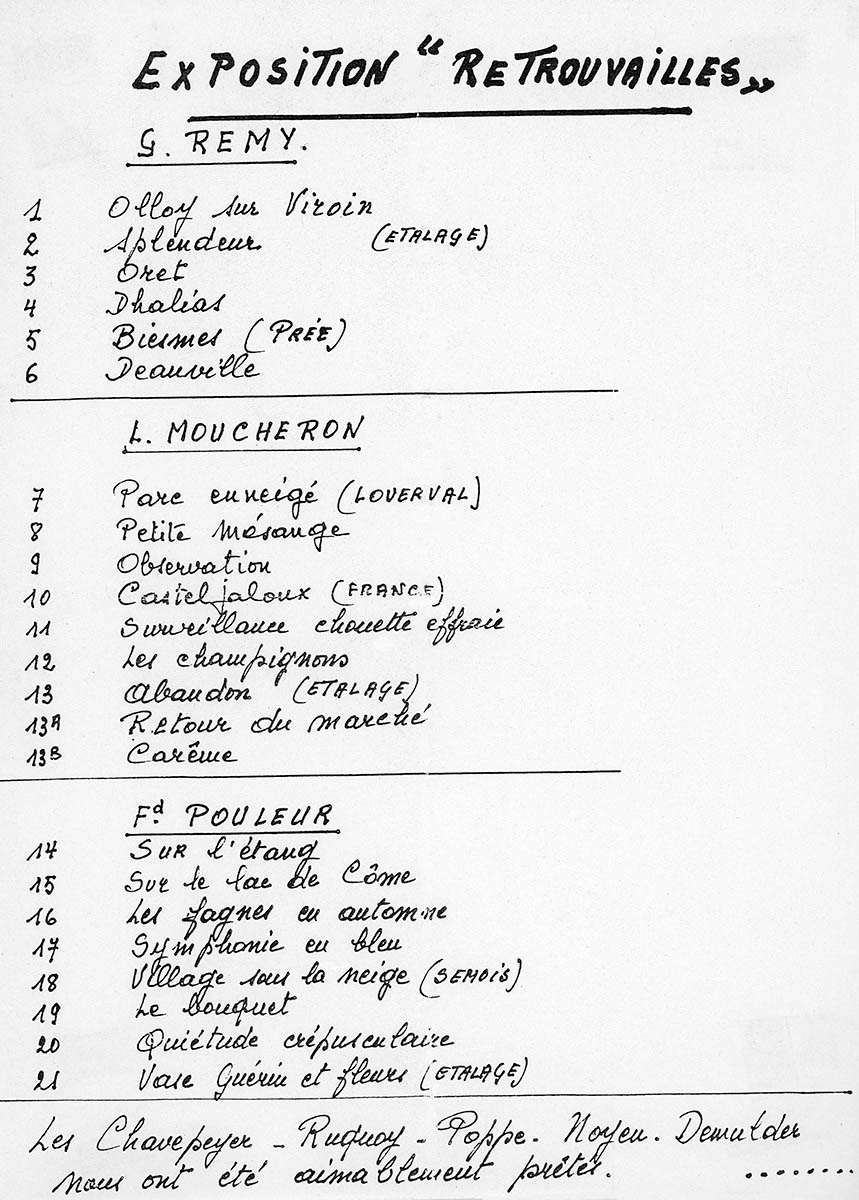 EXPOSITION "RETROUVAILLES"
G. REMY.
1 Olloy sur Viroin
2 Splendeur (ETALAGE)
3 Oret
4 Dhalias
5 Biesmes (PRÉE)
6 Deauville
L. MOUCHERON
7 Parc enneigé (LOVERVAL)
8 Petite mésange
9 Observation
10 Casteljaloux (FRANCE)
11 Surveillance chouette effraie
12 Les champignons
13 Abandon (ETALAGE)
13A Retour du marché
13B Carême
Fd. POULEUR
14 SUR l'étang
15 Sur le lac de Côme
16 Les fagnes en automne
17 Symphonie en bleu
18 Village sous la neige (SEMOIS)
19 Le bouquet
20 Quiétude crépusculaire
21 Vase Guérin et fleurs (ETALAGE)
Les Chavepeyer - Ruquoy - Poppe - Noyen. Demulder
nous ont été aimablement prêtés. ........